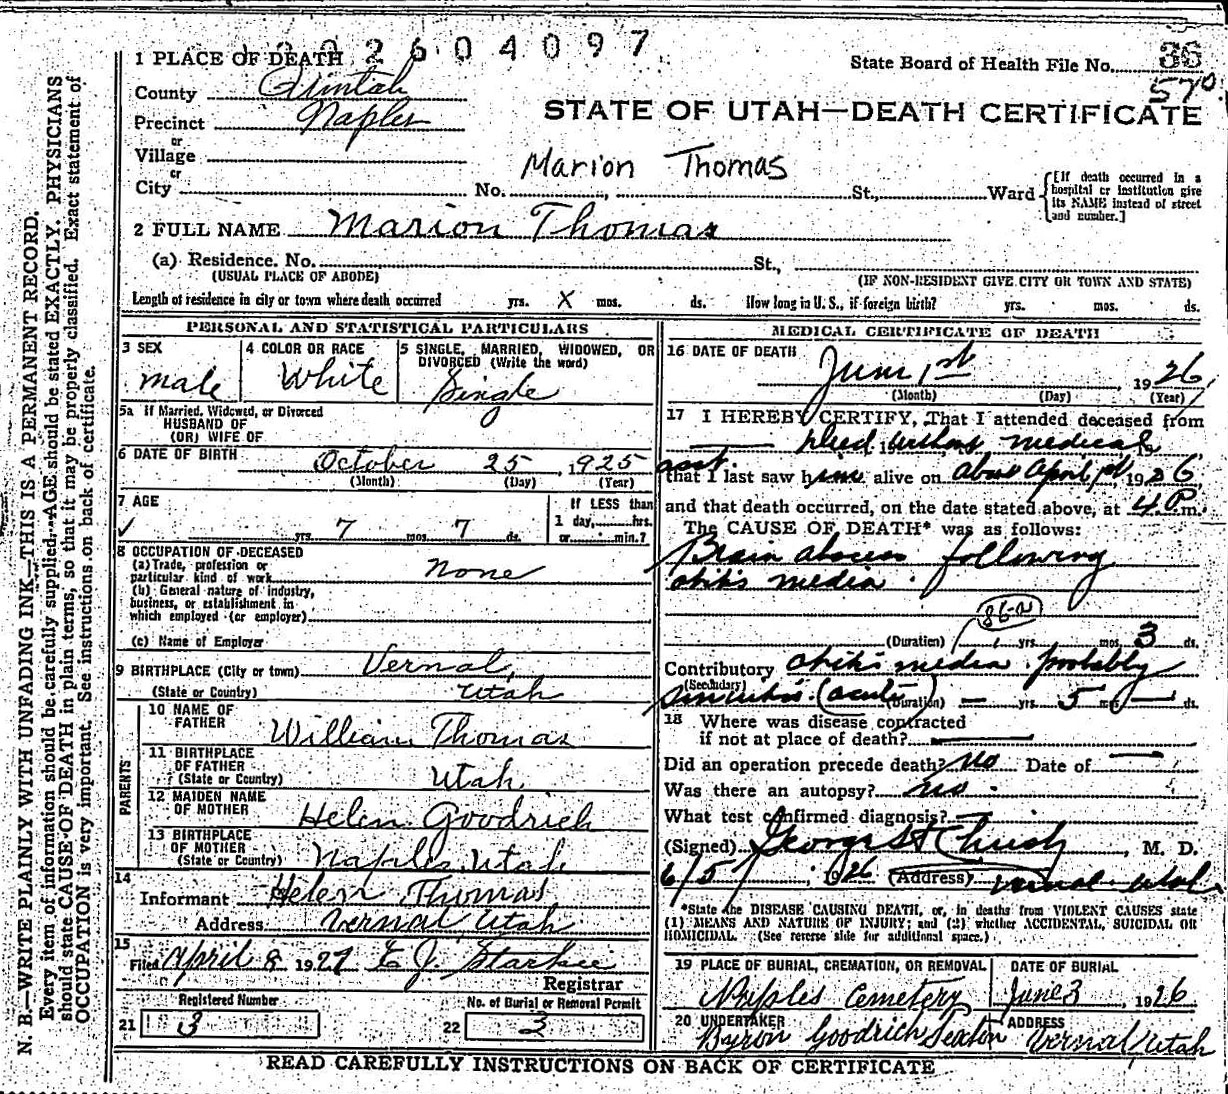 1202604097
1 PLACE OF DEATH
State Board of Health File No. 36
570
County Uintah
STATE OF UTAH—DEATH CERTIFICATE
Precinct Naples
or
Village
Marion Thomas
or
City No. St., Ward
[If death occurred in a hospital or institution give its NAME instead of street and number.]
2 FULL NAME Marion Thomas
(a) Residence. No. St.,
(USUAL PLACE OF ABODE) (IF NON-RESIDENT GIVE CITY OR TOWN AND STATE)
Length of residence in city or town where death occurred yrs. X mos. ds. How long in U. S., if foreign birth? yrs. mos. ds.
PERSONAL AND STATISTICAL PARTICULARS
3 SEX
male
4 COLOR OR RACE
White
5 SINGLE, MARRIED, WIDOWED, OR
DIVORCED (Write the word)
Single
5a If Married, Widowed, or Divorced
HUSBAND OF
(OR) WIFE OF
6 DATE OF BIRTH October 25, 1925
(Month) (Day) (Year)
7 AGE
✓ yrs. 7 mos. 7 ds.
If LESS than
1 day, hrs.
or min.?
8 OCCUPATION OF DECEASED
(a) Trade, profession or
particular kind of work none
(b) General nature of industry,
business, or establishment in
which employed (or employer)
(c) Name of Employer
9 BIRTHPLACE (City or town) Vernal,
(State or Country) Utah
PARENTS
10 NAME OF
FATHER William Thomas
11 BIRTHPLACE
OF FATHER
(State or Country) Utah
12 MAIDEN NAME
OF MOTHER Helen Goodrich
13 BIRTHPLACE
OF MOTHER
(State or Country) Naples, Utah
14
Informant Helen Thomas
Address Vernal Utah
15
Filed April 8 1927 E J. Starkie
Registrar
Registered Number
21 3
No. of Burial or Removal Permit
22 3
MEDICAL CERTIFICATE OF DEATH
16 DATE OF DEATH
June 1st, 1926
(Month) (Day) (Year)
17 I HEREBY CERTIFY, That I attended deceased from
died without medical
asst.
that I last saw him alive on about April 1st 1926,
and that death occurred, on the date stated above, at 4 P.m.
The CAUSE OF DEATH* was as follows:
Brain abscess following
otitis media.
86-a
(Duration) yrs. mos. 3 ds.
Contributory otitis media. probably
(Secondary) (acute) (Duration) — yrs. 5 mos — ds.
18 Where was disease contracted
if not at place of death?
Did an operation precede death? no Date of —
Was there an autopsy? no.
What test confirmed diagnosis? —
(Signed) M. D.
6/5, 1926 (Address) Vernal Utah
*State the DISEASE CAUSING DEATH, or, in deaths from VIOLENT CAUSES state
(1) MEANS AND NATURE OF INJURY; and (2) whether ACCIDENTAL, SUICIDAL OR
HOMICIDAL. (See reverse side for additional space.)
19 PLACE OF BURIAL, CREMATION, OR REMOVAL
Naples Cemetery
DATE OF BURIAL
June 3, 1926
20 UNDERTAKER
Byron Goodrich Sexton
ADDRESS
Vernal, Utah
READ CAREFULLY INSTRUCTIONS ON BACK OF CERTIFICATE
N. B.—WRITE PLAINLY WITH UNFADING INK—THIS IS A PERMANENT RECORD.
Every item of information should be carefully supplied. AGE should be stated EXACTLY. PHYSICIANS
should state CAUSE OF DEATH in plain terms, so that it may be properly classified. Exact statement of
OCCUPATION is very important. See instructions on back of certificate.